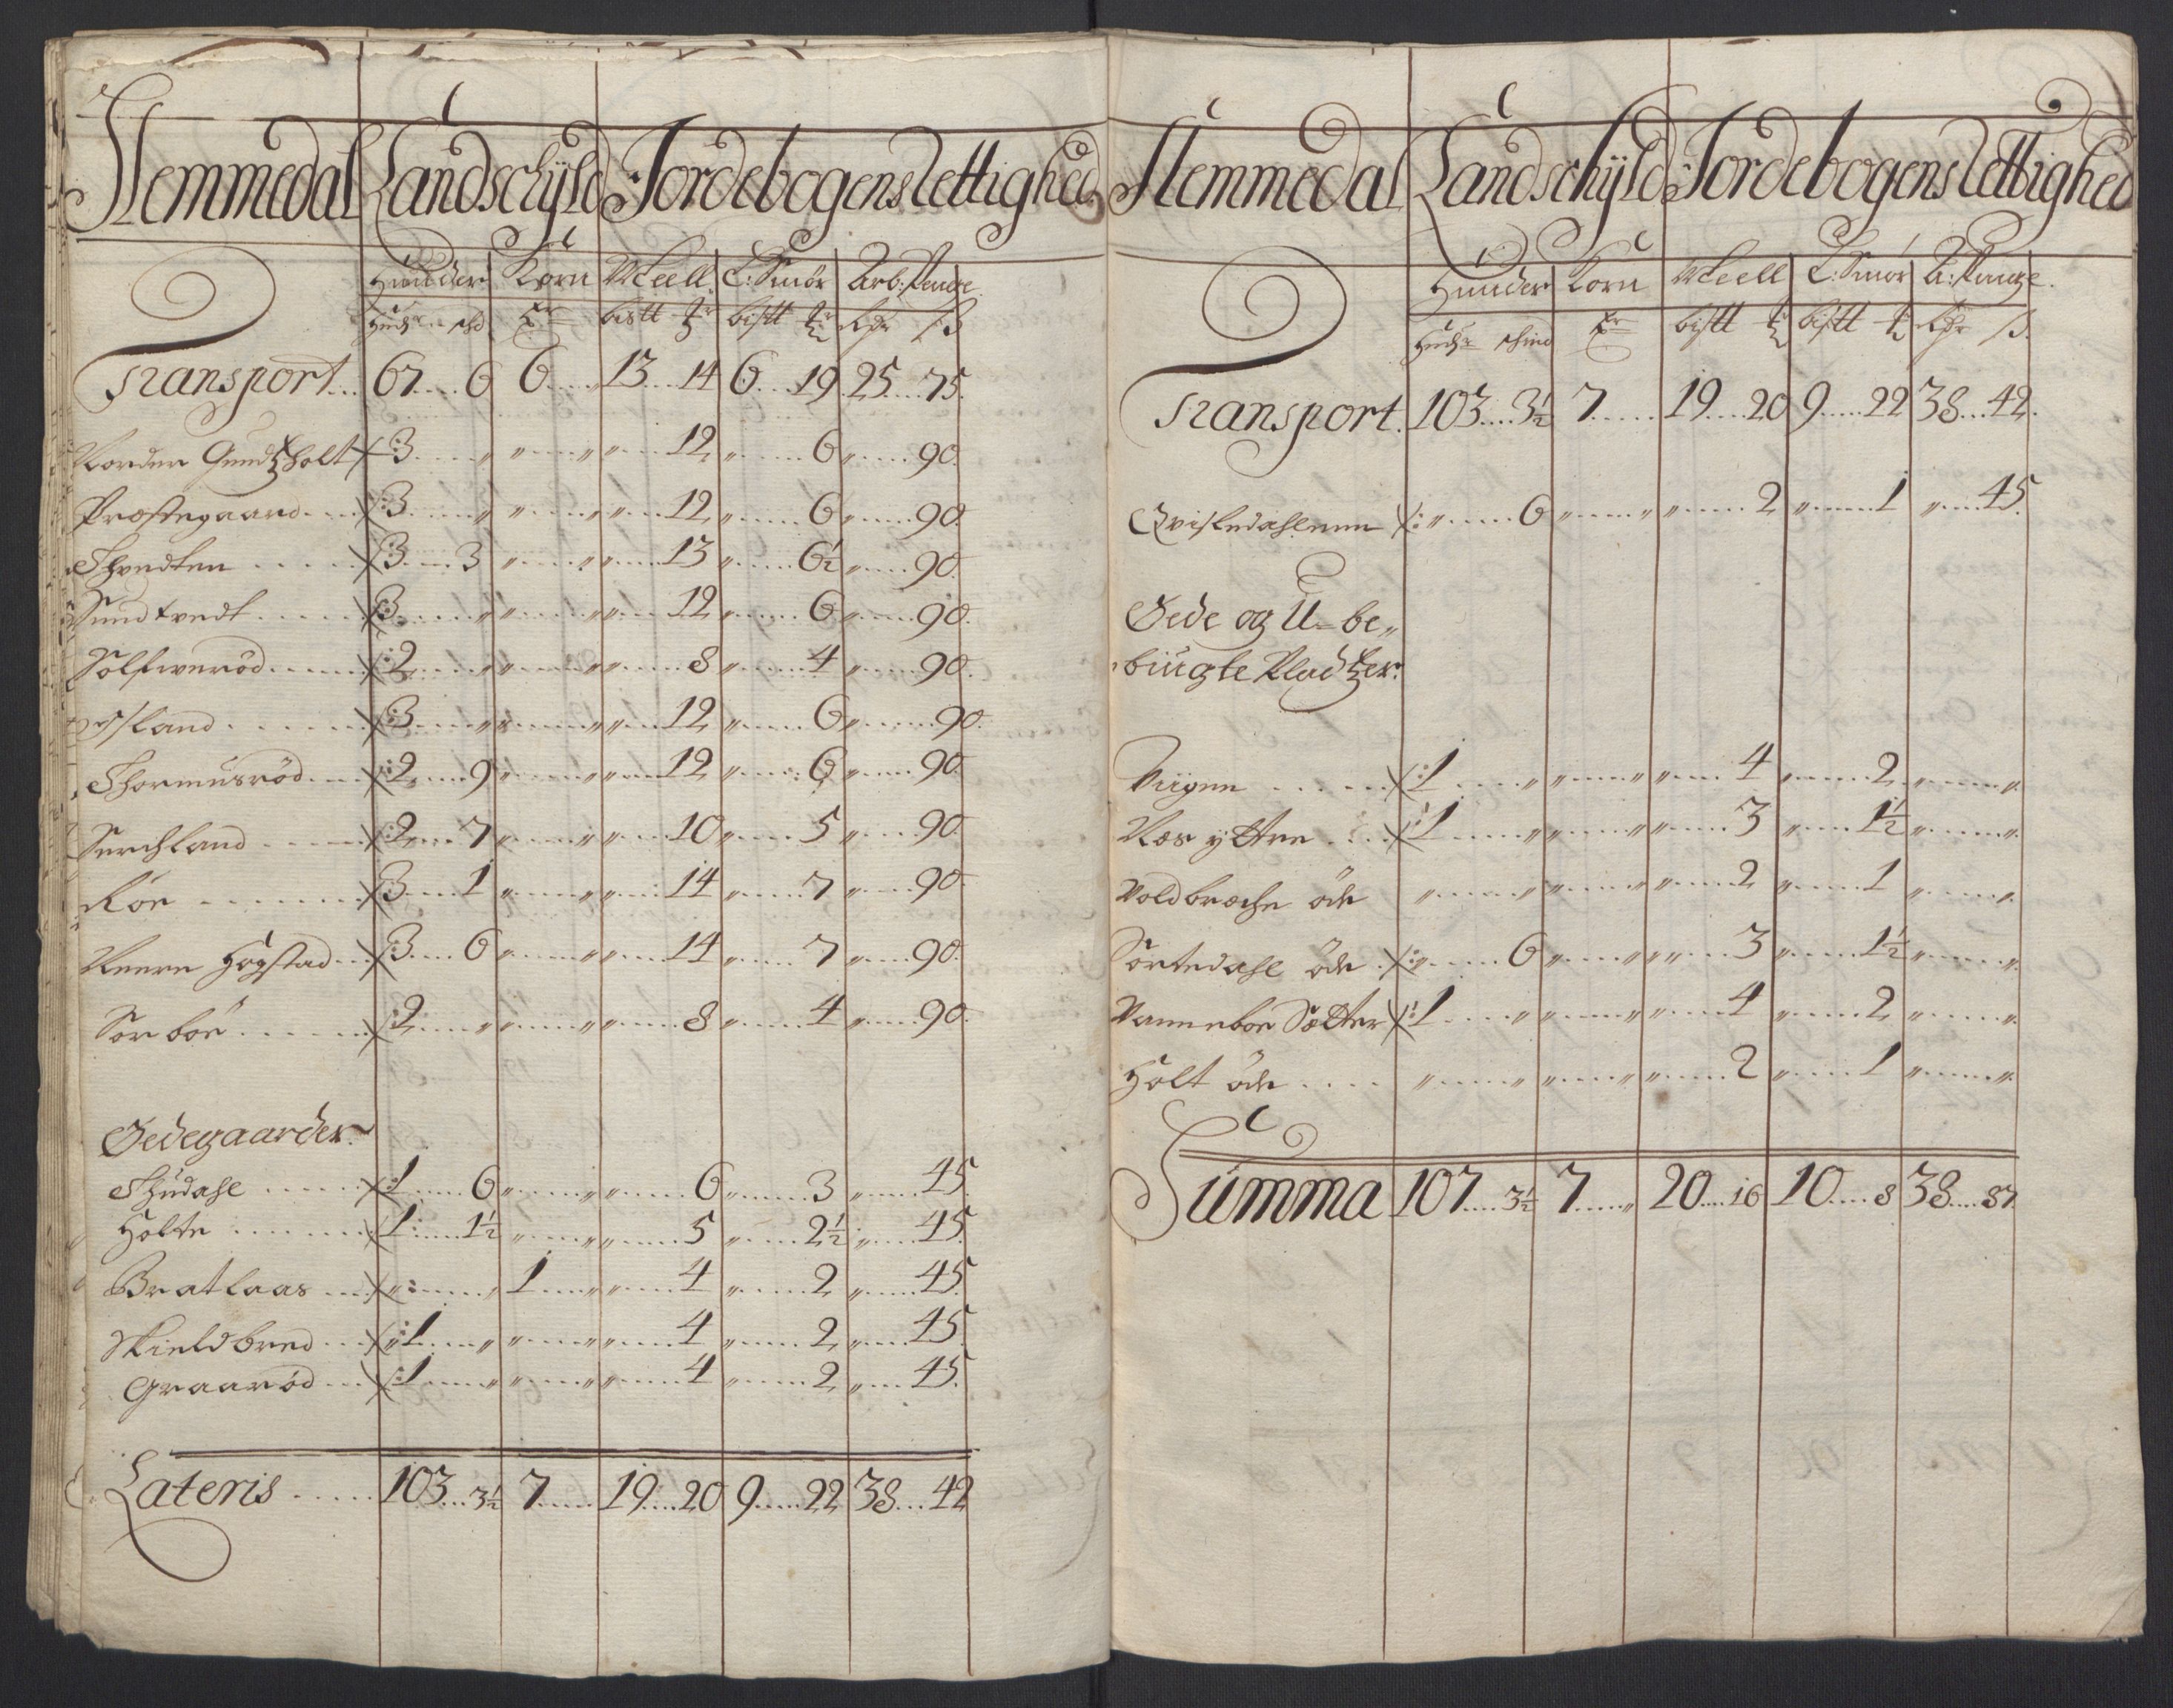 Hemmedal Landschÿld Jordebogens Rettighed
Huuder Korn Meell L: Smör Arb: Penge
Hudr schd bistt bistt
Transport 67 6 6 13 14 6 19 25 75
Norder Gundtzholt 3 " " " 12 " 6 " 90
Præstegaard 3 " " " 12 " 6 " 90
Thvedten 3 3 " " 13 " 6½ " 90
Sundtvedt 3 " " " 12 " 6 " 90
Solfverød 2 " " " 8 " 4 " 90
Island 3 " " " 12 " 6 " 90
Thormusrød 2 9 " " 12 " 6 " 90
Surchland 2 7 " " 10 " 5 " 90
Röe 3 1 " " 14 " 7 " 90
Neere Hogstad 3 6 " " 14 " 7 " 90
Sör boe 2 " " " 8 " 4 " 90
Ødegaarder
Thudahl 1 6 " " 6 " 3 " 45
Holte 1 1½ " " 5 " 2½ " 45
Bratlaas " " 1 " 4 " 2 " 45
Skieldbred 1 " " " 4 " 2 " 45
Graarød 1 " " " 4 " 2 " 45
Lateris 103 3½ 7 19 20 9 22 38 42
Hemmedal Landschÿld Jordebogens Rettighed
Huuder Korn Meell L: Smör A: Penge
Hudr schind bistt bistt
Transport 103 3½ 7 19 20 9 22 38 42
Qvisledahlenn " 6 " " 2 " 1 " 45
Øede og U-be"
bûugte Pladtzer
Viigen 1 " " " 4 " 2 " "
Næs yttre 1 " " " 3 " 1½ " "
Voldbreche öde " " " " 2 " 1 " "
Sortedahl öde " 6 " " 3 " 1½ " "
Vanneboe Sætter 1 " " " 4 " 2 " "
Holt öde " " " " 2 " 1 " "
Sûmma 107 3½ 7 " 20 16 10 8 38 87